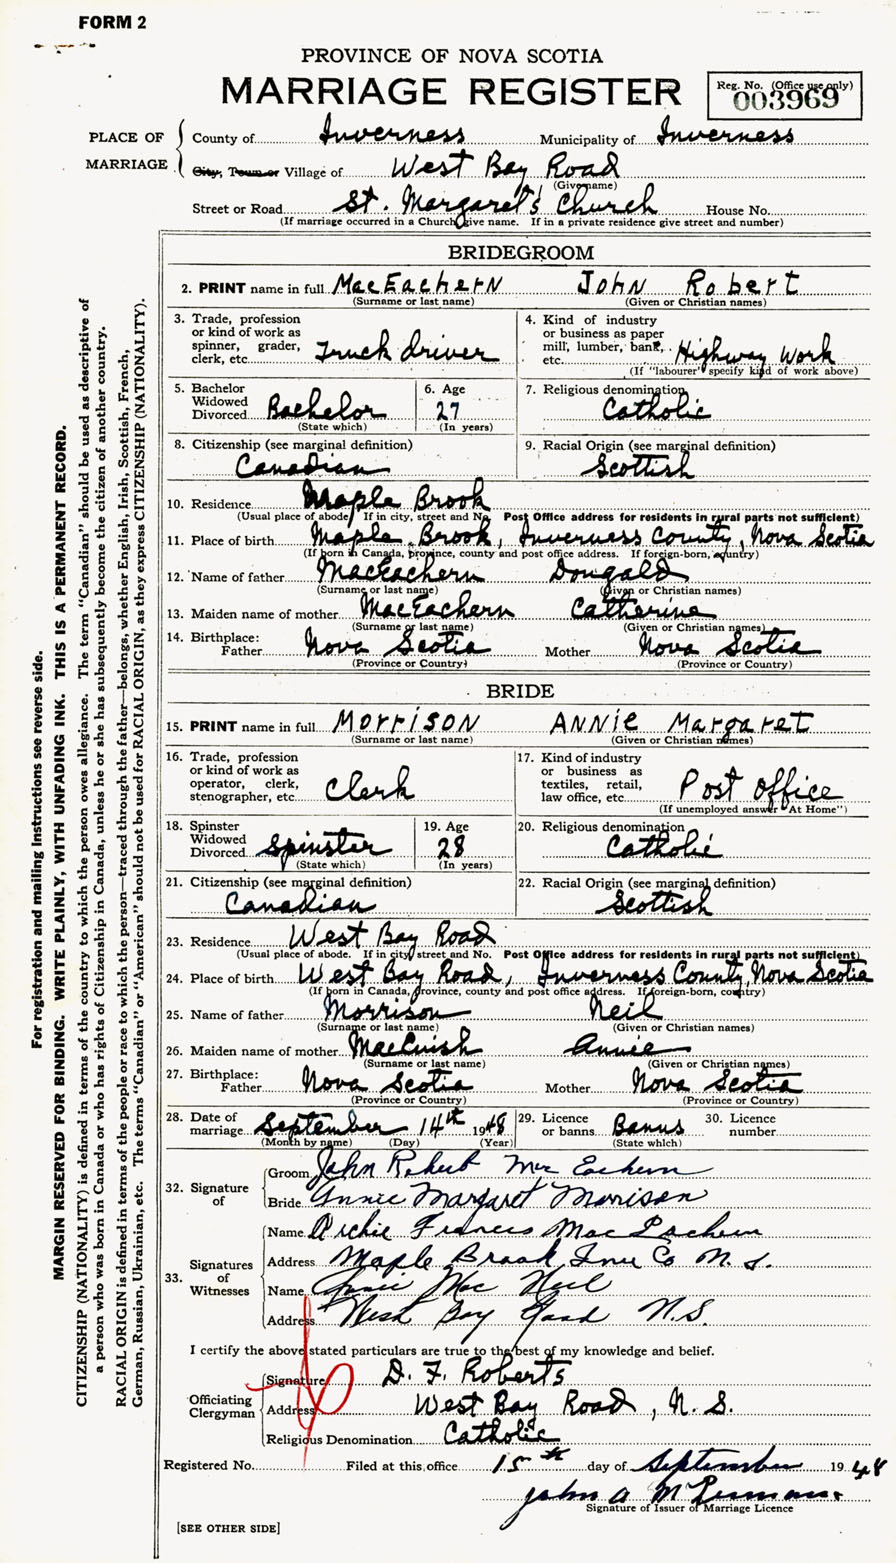 FORM 2
PROVINCE OF NOVA SCOTIA
MARRIAGE REGISTER
Reg. No. (Office use only)
003969
PLACE OF MARRIAGE
County of Inverness Municipality of Inverness
City, Town or Village of West Bay Road
(Give name)
Street or Road St. Margaret's Church House No.
(If marriage occurred in a Church give name. If in a private residence give street and number)
BRIDEGROOM
2. PRINT name in full MacEachern John Robert
(Surname or last name) (Given or Christian names)
3. Trade, profession or kind of work as spinner, grader, clerk, etc. Truck driver
4. Kind of industry or business as paper mill, lumber, bank, etc. Highway Work
(If "labourer" specify kind of work above)
5. Bachelor Widowed Divorced Bachelor
(State which)
6. Age 27
(In years)
7. Religious denomination Catholic
8. Citizenship (see marginal definition)
Canadian
9. Racial Origin (see marginal definition)
Scottish
10. Residence Maple Brook
(Usual place of abode. If in city, street and No. Post Office address for residents in rural parts not sufficient)
11. Place of birth Maple Brook, Inverness County, Nova Scotia
(If born in Canada, province, county and post office address. If foreign-born, country)
12. Name of father MacEachern Dougald
(Surname or last name) (Given or Christian names)
13. Maiden name of mother MacEachern Catherine
(Surname or last name) (Given or Christian names)
14. Birthplace:
Father Nova Scotia Mother Nova Scotia
(Province or Country) (Province or Country)
BRIDE
15. PRINT name in full Morrison Annie Margaret
(Surname or last name) (Given or Christian names)
16. Trade, profession or kind of work as operator, clerk, stenographer, etc. Clerk
17. Kind of industry or business as textiles, retail, law office, etc. Post Office
(If unemployed answer "At Home")
18. Spinster Widowed Divorced Spinster
(State which)
19. Age 28
(In years)
20. Religious denomination Catholic
21. Citizenship (see marginal definition)
Canadian
22. Racial Origin (see marginal definition)
Scottish
23. Residence West Bay Road
(Usual place of abode. If in city, street and No. Post Office address for residents in rural parts not sufficient)
24. Place of birth West Bay Road, Inverness County, Nova Scotia
(If born in Canada, province, county and post office address. If foreign-born, country)
25. Name of father Morrison Neil
(Surname or last name) (Given or Christian names)
26. Maiden name of mother MacCuish Annie
(Surname or last name) (Given or Christian names)
27. Birthplace:
Father Nova Scotia Mother Nova Scotia
(Province or Country) (Province or Country)
28. Date of marriage September 14th 1948
(Month by name) (Day) (Year)
29. Licence or banns Banns
(State which)
30. Licence number
32. Signature of
Groom John Robert Mac Eachern
Bride Annie Margaret Morrison
33. Signatures of Witnesses
Name Archie Francis Mac Eachern
Address Maple Brook Inv Co N.S.
Name Annie Mac Neil
Address West Bay Road N.S.
I certify the above stated particulars are true to the best of my knowledge and belief.
Officiating Clergyman
Signature D. F. Roberts
Address West Bay Road, N.S.
Religious Denomination Catholic
Registered No. Filed at this office 15th day of September 1948
John A
Signature of Issuer of Marriage Licence
[SEE OTHER SIDE]
For registration and mailing instructions see reverse side.
MARGIN RESERVED FOR BINDING. WRITE PLAINLY, WITH UNFADING INK. THIS IS A PERMANENT RECORD.
CITIZENSHIP (NATIONALITY) is defined in terms of the country to which the person owes allegiance. The term "Canadian" should be used as descriptive of
a person who was born in Canada or who has rights of Citizenship in Canada, unless he or she has subsequently become the citizen of another country.
RACIAL ORIGIN is defined in terms of the people or race to which the person—traced through the father—belongs, whether English, Irish, Scottish, French,
German, Russian, Ukrainian, etc. The terms "Canadian" or "American" should not be used for RACIAL ORIGIN, as they express CITIZENSHIP (NATIONALITY).